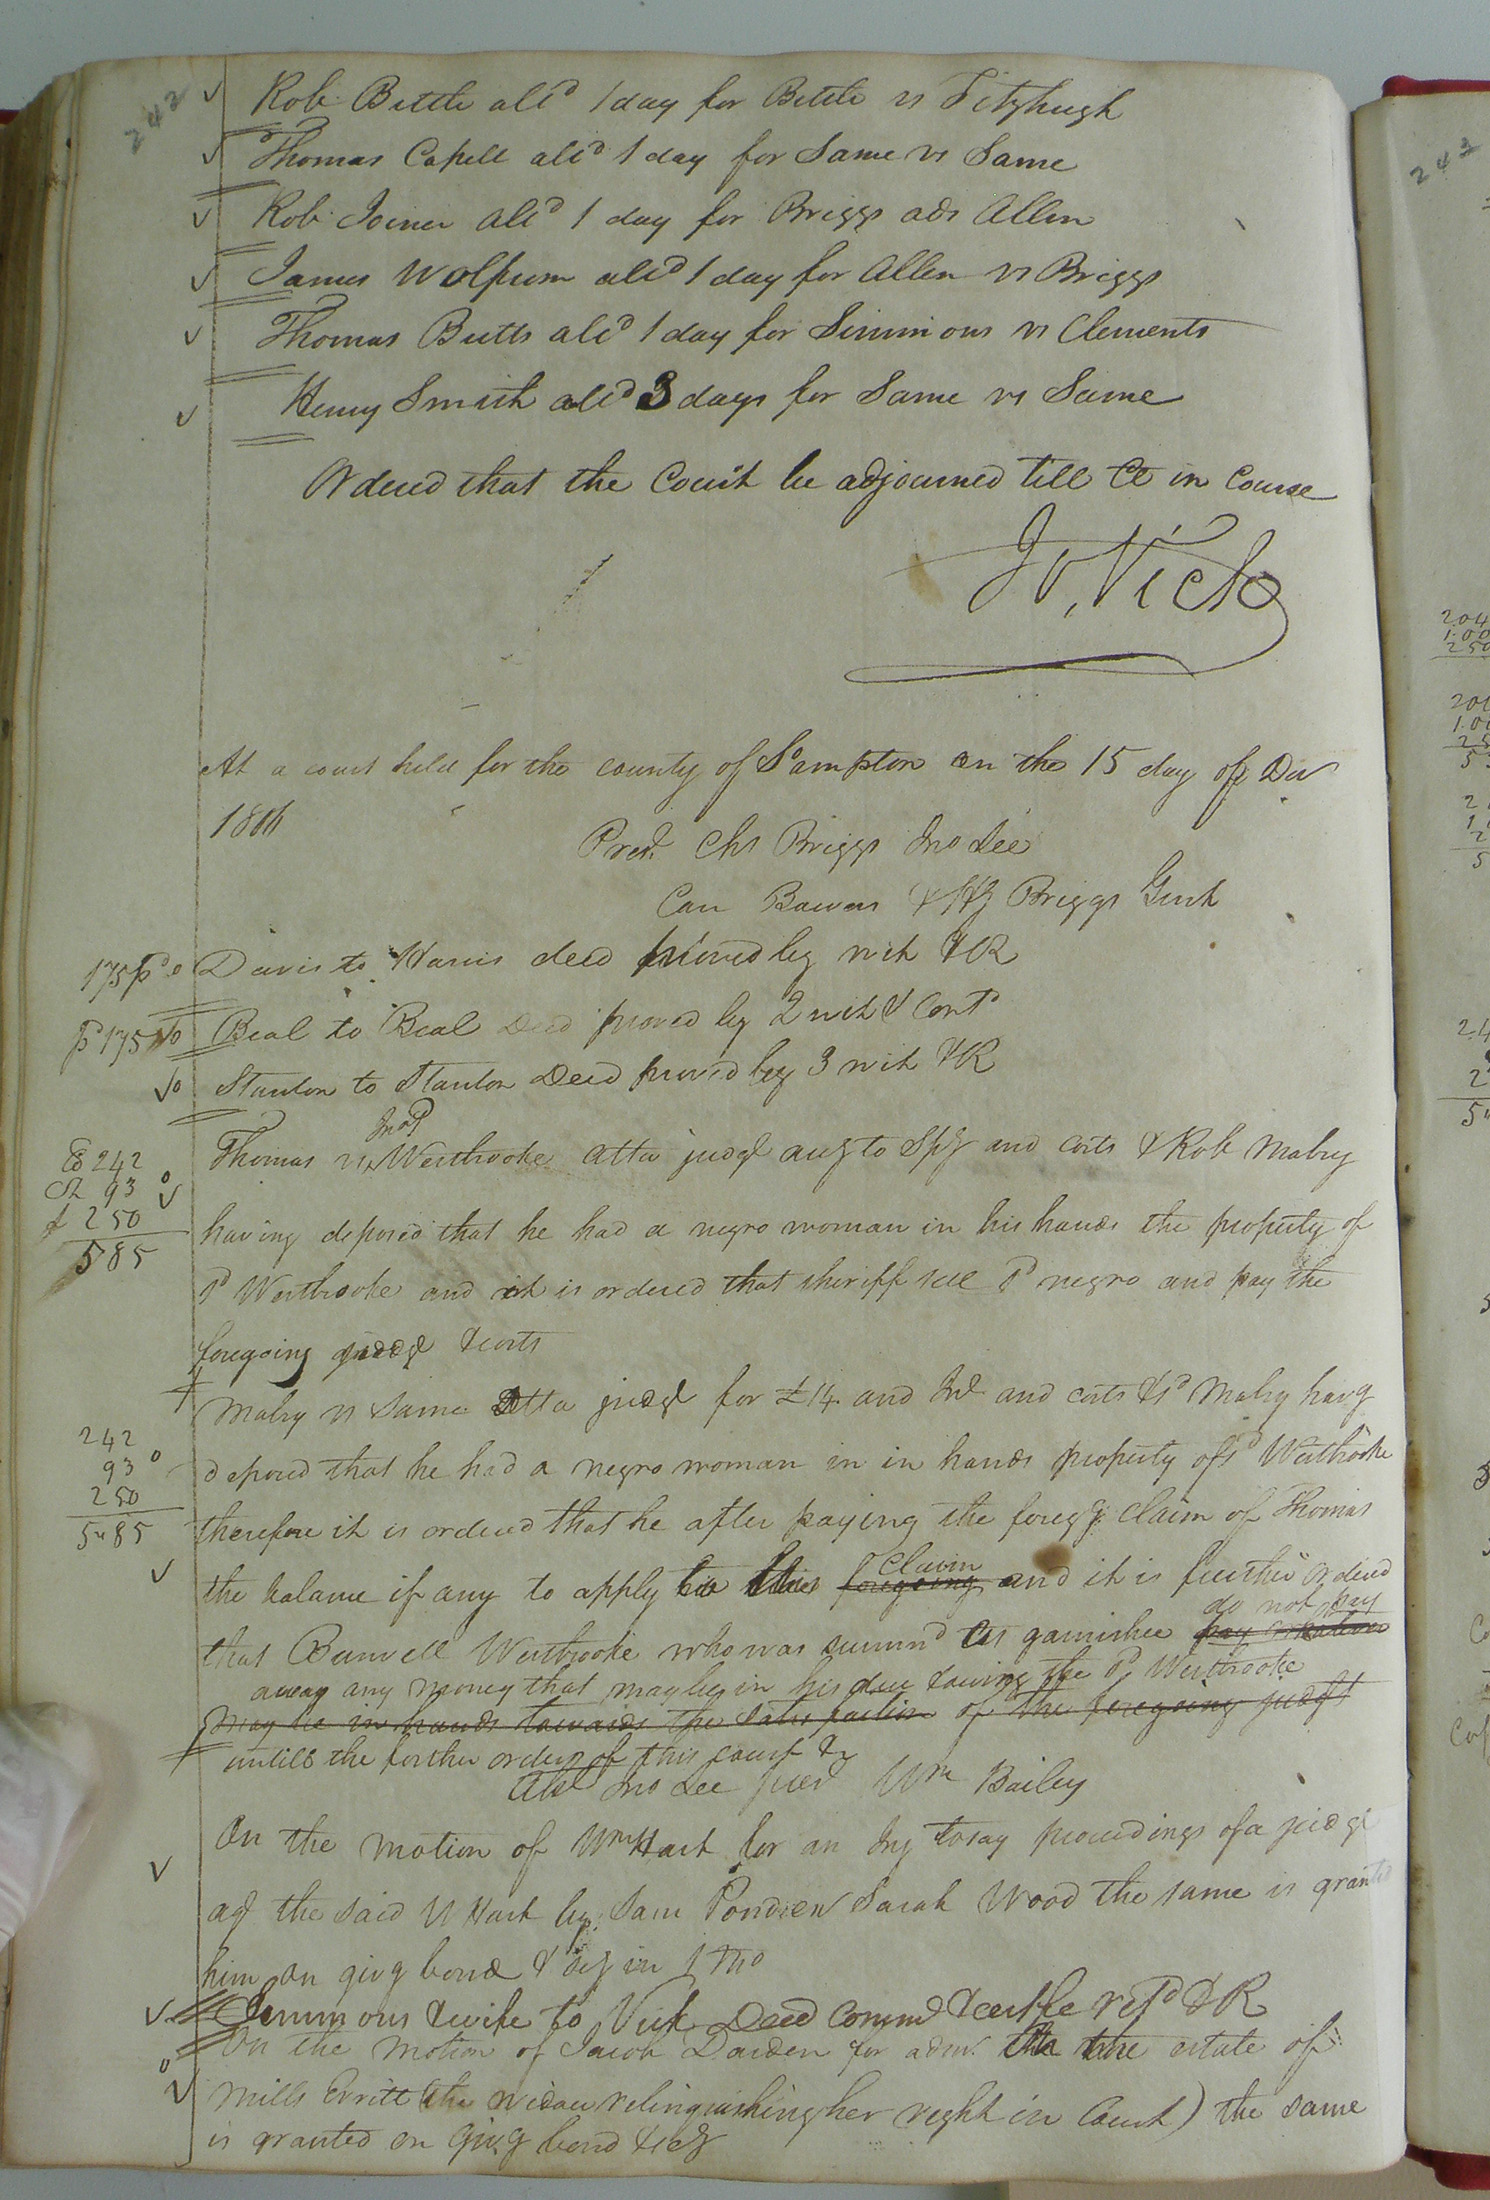 242
Rob: Bittle ald 1 day for Bittle vs Fitzhugh
Thomas Capell ald 1 day for Same vs Same
Rob: Joiner ald 1 day for Briggs ads Allen
James Wolfrom ald 1 day for Allen vs Briggs
Thomas Butts ald 1 day for Simmons vs Clements
Henry Smith ald 3 days for Same vs Same
Ordered that the Court be adjourned till Ct in Course
Jo, Vick
At a court held for the county of S°ampton on the 15 day of
Pres.t Chs Briggs Jno Lee
Bowers & Briggs Gent
175 pd Davis to Harris deed proved by wit & R
pd 175 Beal to Beal Deed proved by 2 wit & Cont
Stanton to Stanton Deed proved by 3 wit & R
242
93
250
585
Thomas vs Jno Westbrooke Atta judgt and costs & Rob Mabry
having deposed that he had a negro woman in his hands the property of
sd Westbrooke and it is ordered that sheriff sell sd negro and pay the
foregoing judgt & costs
Mabry vs Same Atta judgt for £14 and Int and costs & sd Mabry havg
242
93
250
5"85
deposed that he had a negro woman in in hands property of sd Westbrooke
therefore it is ordered that he after paying the foregg claim of Thomas
the balance if any to apply to this foregoing claim and it is further ordered
that Burwell Westbrooke who was summd as garnishee do not pay
away any money that may be in his due & owing the sd Westbrooke
may be in hands towards the Satisfaction of the foregoing judgt
untill the further order of this court &c
Abst Jno Lee prest Wm Bailey
On the motion of Wm Hart for an Inj to stay proceedings of a judgt
agt the said W Hart by Sarah Wood the same is granted
him on givg bond & sey in 1 mo
Simmons & wife to Vick Deed & R
On the motion of Jacob Darden for adm. the estate of
Mills Evritt (the widow relinquishing her right in Court) the same
is granted on givg bond & sey
243